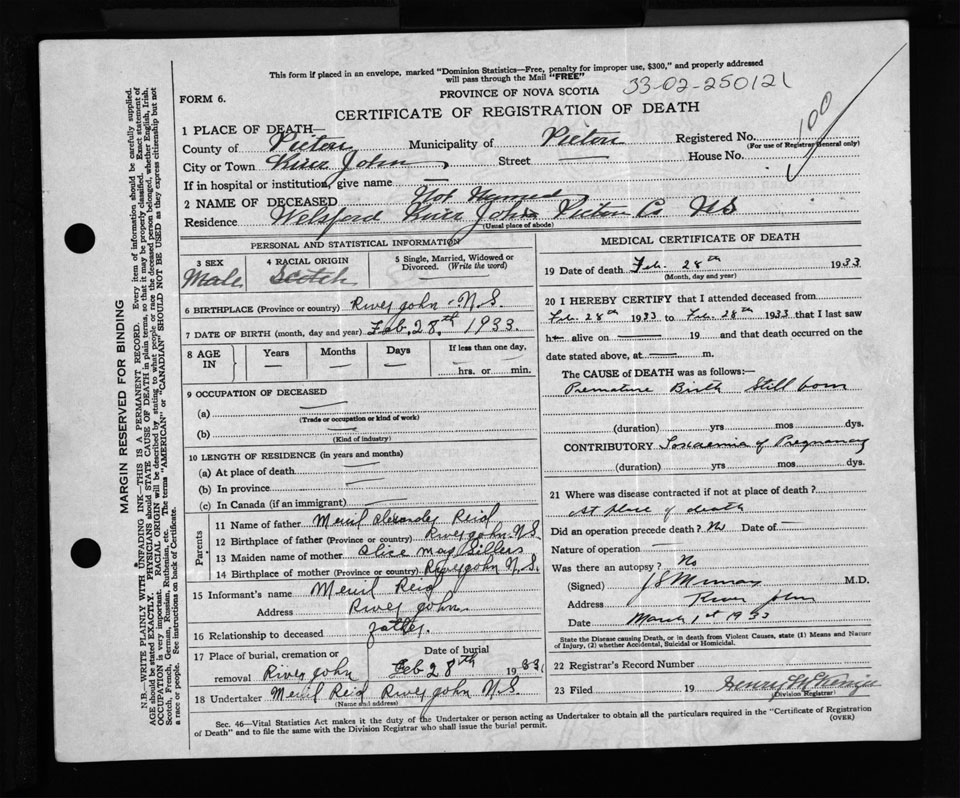 This form if placed in an envelope, marked "Dominion Statistics—Free, penalty for improper use, $300," and properly addressed
will pass through the Mail "FREE"
PROVINCE OF NOVA SCOTIA 33-02-250121
FORM 6.
CERTIFICATE OF REGISTRATION OF DEATH
100
1 PLACE OF DEATH—
County of Pictou Municipality of Pictou Registered No.
(For use of Registrar General only)
City or Town River John Street — House No.
If in hospital or institution, give name —
2 NAME OF DECEASED Not Named
Residence Welsford River John Pictou Co NS
(Usual place of abode)
PERSONAL AND STATISTICAL INFORMATION
3 SEX 4 RACIAL ORIGIN 5 Single, Married, Widowed or Divorced. (Write the word)
Male Scotch
6 BIRTHPLACE (Province or country) River John - N.S.
7 DATE OF BIRTH (month, day and year) Feb. 28.th 1933.
8 AGE IN Years Months Days If less than one day,
hrs. or min.
9 OCCUPATION OF DECEASED
(a)
(Trade or occupation or kind of work)
(b)
(Kind of industry)
10 LENGTH OF RESIDENCE (in years and months)
(a) At place of death
(b) In province
(c) In Canada (if an immigrant)
Parents
11 Name of father Meril Alexander Reid
12 Birthplace of father (Province or country) River John N.S.
13 Maiden name of mother Alice May Sillers
14 Birthplace of mother (Province or country) River John N.S.
15 Informant's name Meril Reid
Address River John
16 Relationship to deceased father.
17 Place of burial, cremation or Date of burial
removal River John Feb 28th 1933
18 Undertaker Meril Reid River John N.S.
(Name and address)
MEDICAL CERTIFICATE OF DEATH
19 Date of death Feb. 28th 1933
(Month, day and year)
20 I HEREBY CERTIFY that I attended deceased from
Feb. 28th 1933 to Feb. 28th 1933 that I last saw
h— alive on — 19 and that death occurred on the
date stated above, at — m.
The CAUSE of DEATH was as follows:—
Premature Birth Still born
(duration) yrs mos dys.
CONTRIBUTORY Toxaemia of Pregnancy
(duration) yrs mos dys.
21 Where was disease contracted if not at place of death?
At place of death
Did an operation precede death? No Date of —
Nature of operation —
Was there an autopsy? No
(Signed) M.D.
Address River John
Date March 1st 1933
State the Disease causing Death, or in death from Violent Causes, state (1) Means and Nature
of Injury, (2) whether Accidental, Suicidal or Homicidal.
22 Registrar's Record Number
23 Filed 19 Henry
(Division Registrar)
Sec. 46—Vital Statistics Act makes it the duty of the Undertaker or person acting as Undertaker to obtain all the particulars required in the "Certificate of Registration
of Death" and to file the same with the Division Registrar who shall issue the burial permit. (OVER)
MARGIN RESERVED FOR BINDING
N.B.—WRITE PLAINLY WITH UNFADING INK—THIS IS A PERMANENT RECORD. Every item of information should be carefully supplied.
AGE should be stated EXACTLY. PHYSICIANS should STATE CAUSE OF DEATH in plain terms, so that it may be properly classified. Exact statement of
OCCUPATION is very important. RACIAL ORIGIN will be described by stating to what people or race the deceased person belonged, whether English, Irish,
Scotch, French, German, Russian, Ruthenian, etc. The terms "AMERICAN" or "CANADIAN" SHOULD NOT BE USED as they express citizenship but not
a race or people. See instructions on back of Certificate.